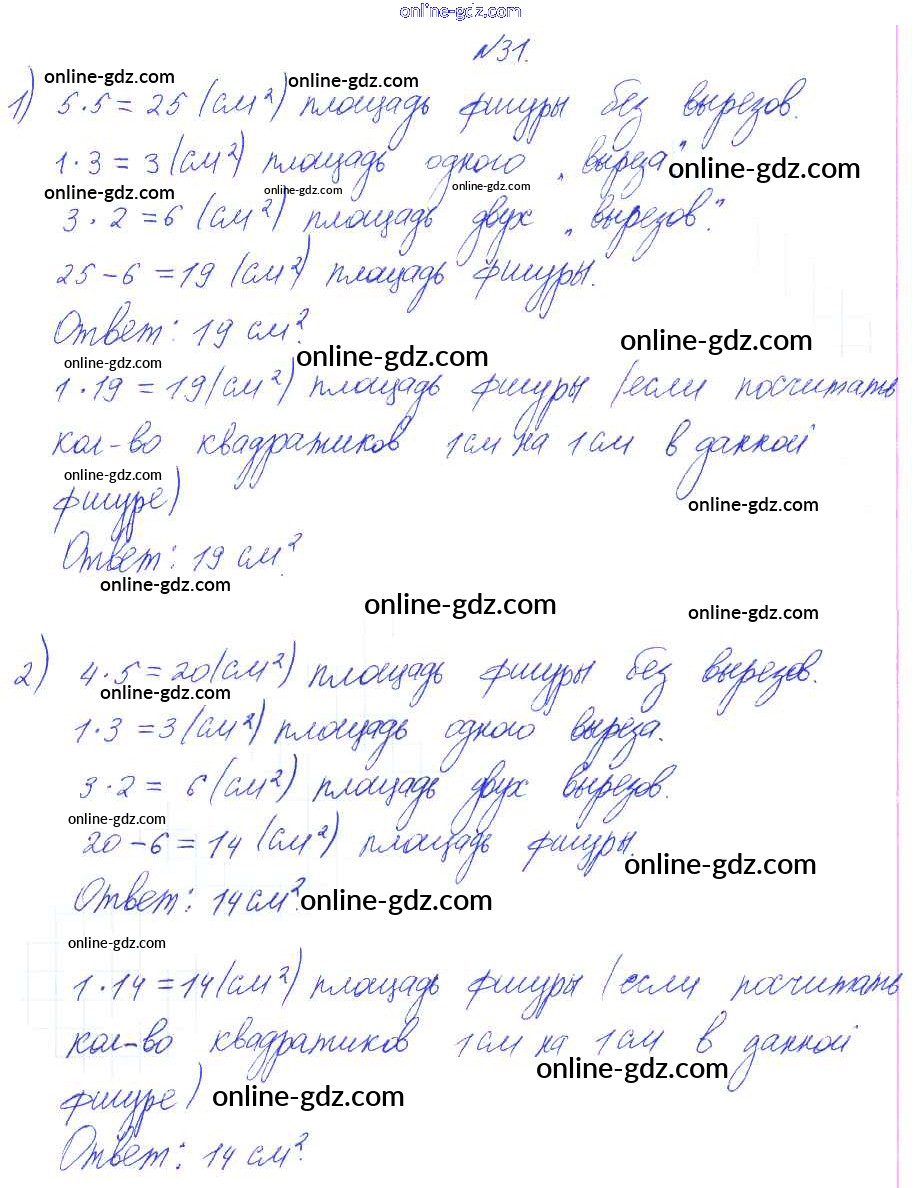 online-gdz.com
№31.
online-gdz.com online-gdz.com
1) 5·5=25 (см²) площадь фигуры без вырезов.
1·3=3 (см²) площадь одного „выреза" online-gdz.com
online-gdz.com online-gdz.com online-gdz.com
3·2=6 (см²) площадь двух „вырезов".
25-6=19 (см²) площадь фигуры.
Ответ: 19 см².
online-gdz.com online-gdz.com online-gdz.com
1·19=19(см²) площадь фигуры (если посчитать
кол-во квадратиков 1см на 1см в данной
online-gdz.com
фигуре) online-gdz.com
Ответ: 19 см².
online-gdz.com online-gdz.com online-gdz.com
2) 4·5=20(см²) площадь фигуры без вырезов.
online-gdz.com
1·3=3(см²) площадь одного выреза.
3·2= 6(см²) площадь двух вырезов.
online-gdz.com
20-6=14 (см²) площадь фигуры.
online-gdz.com
Ответ: 14см². online-gdz.com
online-gdz.com
1·14=14(см²) площадь фигуры (если посчитать
кол-во квадратиков 1см на 1см в данной
online-gdz.com
фигуре) online-gdz.com
Ответ: 14 см².